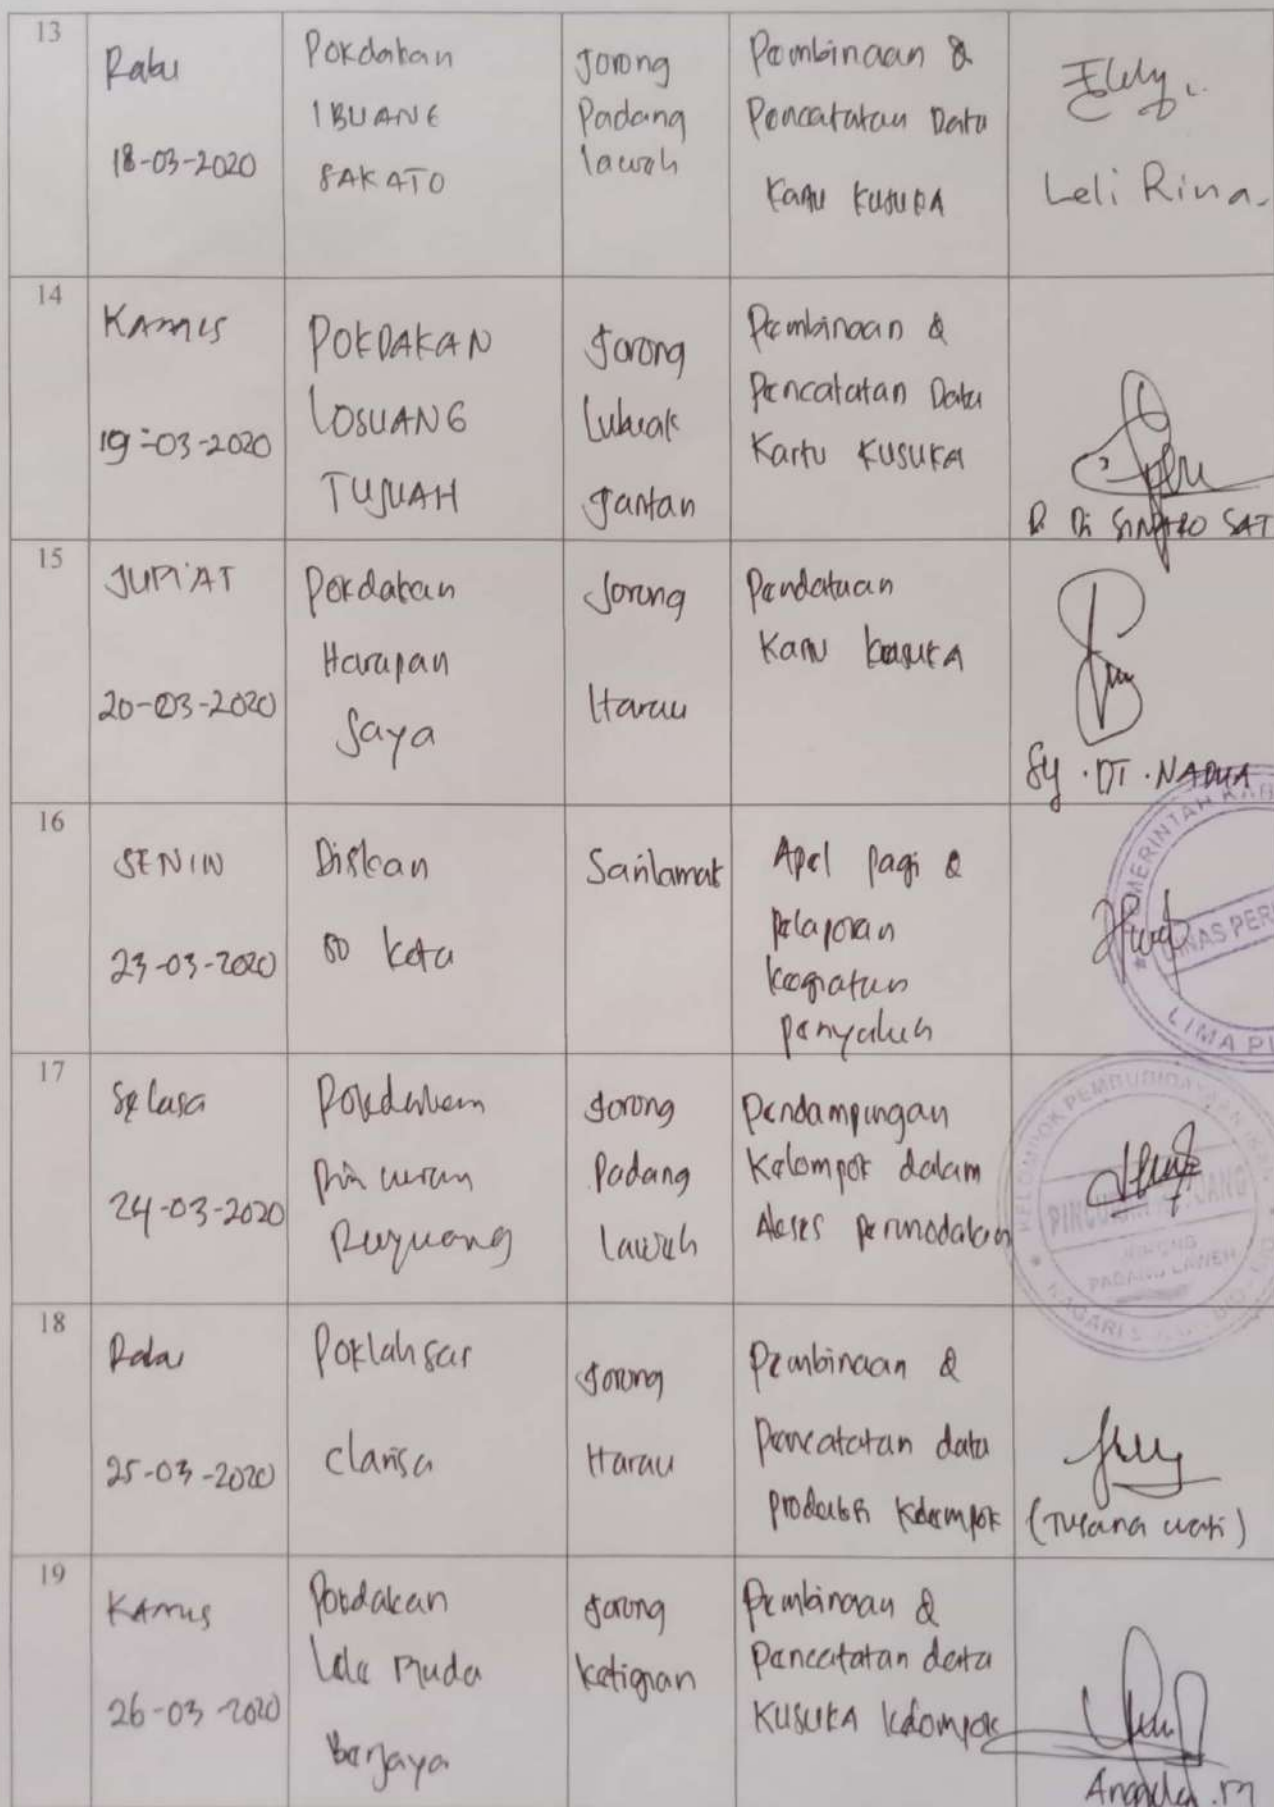 13
Rabu
18-03-2020
Pokdakan
IBUANG
SAKATO
Jorong
Padang
laweh
Pembinaan &
Pencatatan Data
Kartu KUSUKA
Leli Rina.
14
KAmis
19-03-2020
POKDAKAN
LOSUANG
TUJUAH
Jorong
Lubuak
Jantan
Pembinaan &
Pencatatan Data
Kartu KUSUKA
15
JUM'AT
20-03-2020
Pokdakan
Harapan
Jaya
Jorong
Harau
Pendataan
Kartu kusukA
Sy. DT. NADUA
16
SENIN
23-03-2020
Diskan
50 kota
Sarilamak
Apel pagi &
pelaporan
kegiatan
penyuluh
LIMA PU
17
Selasa
24-03-2020
Pokdakan
Pincuran
Ruyuang
Jorong
Padang
laweh
Pendampingan
Kelompok dalam
Akses permodalan
KELOMPOK PEMBUDIDAYAAN IKAN
JORONG
PADANG LAWEH
18
Rabu
25-03-2020
Poklahsar
clarisa
Jorong
Harau
Pembinaan &
Pencatatan data
produksi Kelompok
19
KAmis
26-03-2020
Pokdakan
Lele Muda
Berjaya
Jorong
ketigran
Pembinaan &
Pencatatan data
KUSUKA kelompok